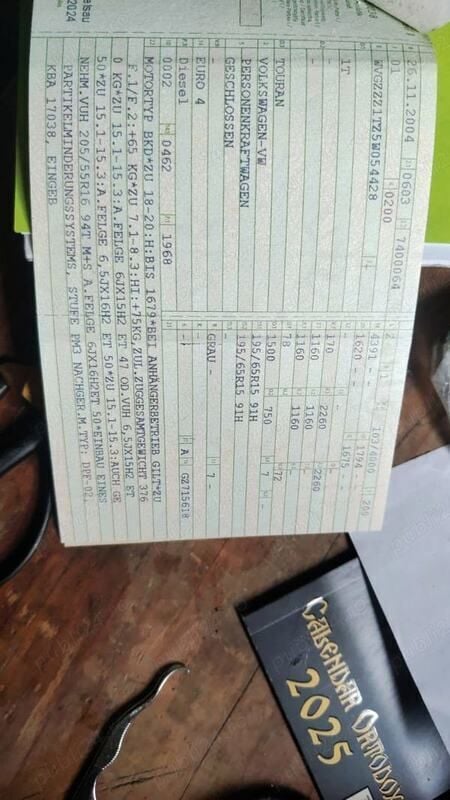 26.11.2004 0603 7400064
01 0200
WVGZZZ1TZ5W054428
1T
-
-
TOURAN
VOLKSWAGEN-VW
PERSONENKRAFTWAGEN
GESCHLOSSEN
-
EURO 4
EURO 4
Diesel
0002 0462 1968
4391 - -
1620 - -
1794 -
1675 -
170 2260
1160 1160 2260
1160 1160 -
78 72
1500 750 7 -
195/65R15 91H
195/65R15 91H
-
GRAU- 7 -
- A GZ715618
MOTORTYP BKD*ZU 18-20:H:BIS 1679*BEI ANHÄNGERBETRIEB GILT*ZU
F.1/F.2:+65 KG*ZU 7.1-8.3:HI:+75KG,ZUL.ZUGGESAMTGEWICHT 376
0 KG*ZU 15.1-15.3:A.FELGE 6JX15H2 ET 47 OD.VUH 6,5JX15H2 ET
50*ZU 15.1-15.3:A.FELGE 6,5JX16H2 ET 50*ZU 15.1-15.3:AUCH GE
NEHM.VUH 205/55R16 94T M+S A.FELGE 6JX16H2ET 50*EINBAU EINES
PARTIKELMINDERUNGSSYSTEMS, STUFE PM3 NACHGER.M.TYP: DPF-02,
KBA 17038, EINGEB
2024
CALENDAR ORTODOX
2025